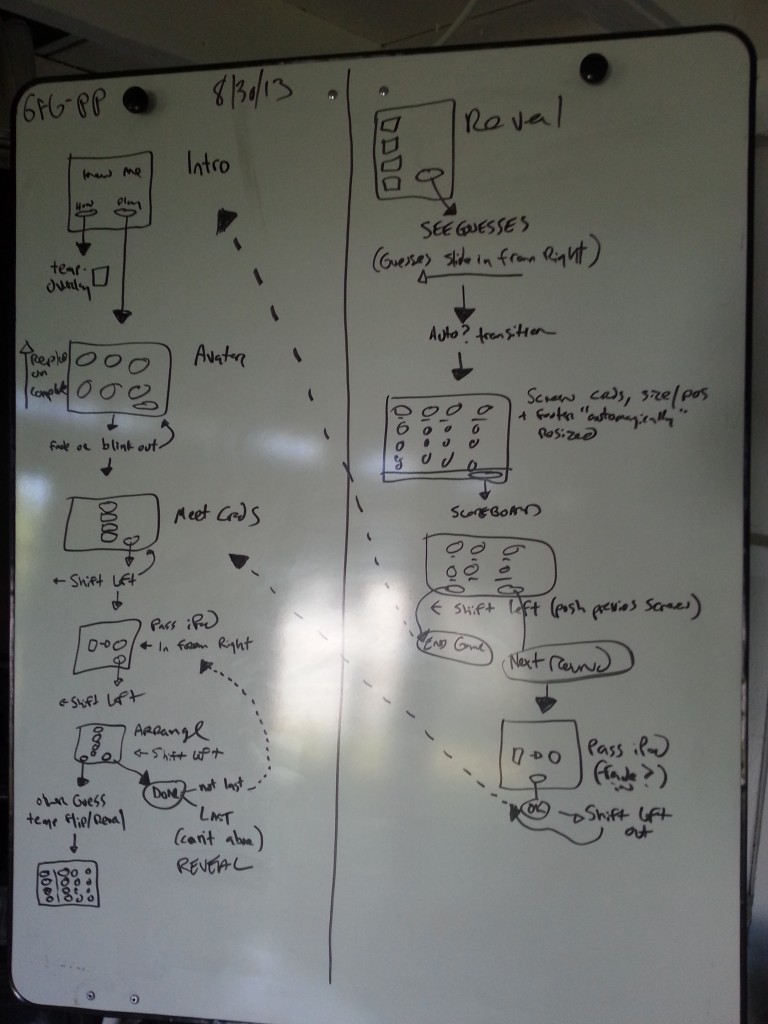 GFG-PP
8/30/13
Intro
Know Me
How
Play
temp.
Overlay
Avatar
Replace
on
Complete
fade or blink out
Meet Cards
← Shift Left
Pass iPad
← In from Right
← Shift Left
ARRANGE
← Shift Left
DONE
not last
LAST
(can't abore)
REVEAL
Guess
temp Flip/Reveal
Reveal
SEE GUESSES
(Guesses slide in from Right)
Auto? transition
Screen cards, size/pos
+ footer "automagically"
resized
SCOREBOARD
← Shift left (push previous screen)
END Game
Next Round
Pass iPad
(fade?)
in
OK
→ Shift Left
out